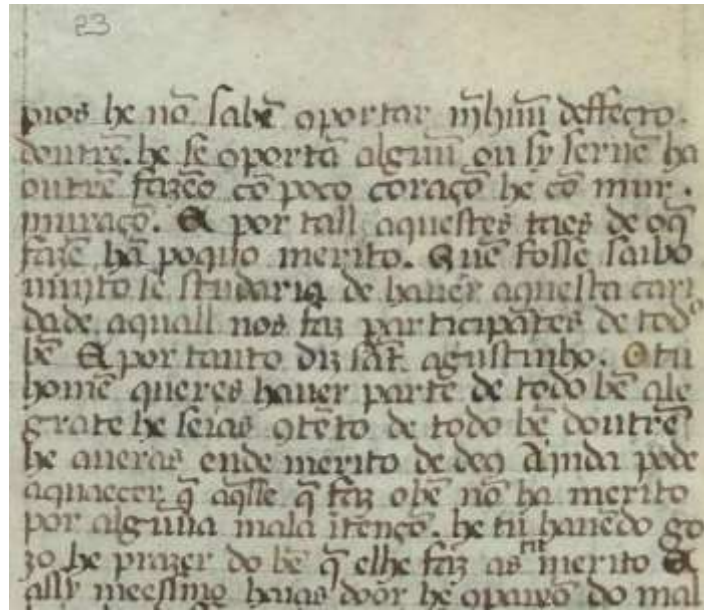 23
pios he nõ sabẽ oportar nẽhũu deffecto.
doutrẽ. he se oportã algũu ou sy seruẽ ha
outrẽ fazẽo cõ poco coraçõ he cõ mur.
muraçõ. E por tall aquestes taes de oq̃
fazẽ hã poquo merito. Quẽ fosse saibo
muyto se studaria de hauer aquesta cari
dade aquall nos faz participãtes de todo
bẽ E por tanto diz sãt agustinho. O tu
homẽ queres hauer parte de todo bẽ ale
grate he seias ꝯtẽto de todo bẽ doutrẽ
he aueras ende merito de deꝯ Ajnda pode
aquaecer q̃ aq̃lle q̃ faz obẽ nõ ha merito
por algũua mala ĩtençõ. he tu hauẽdo go
zo he prazer do bẽ q̃ elhe faz as merito E
assy meesmo haias door he do mal